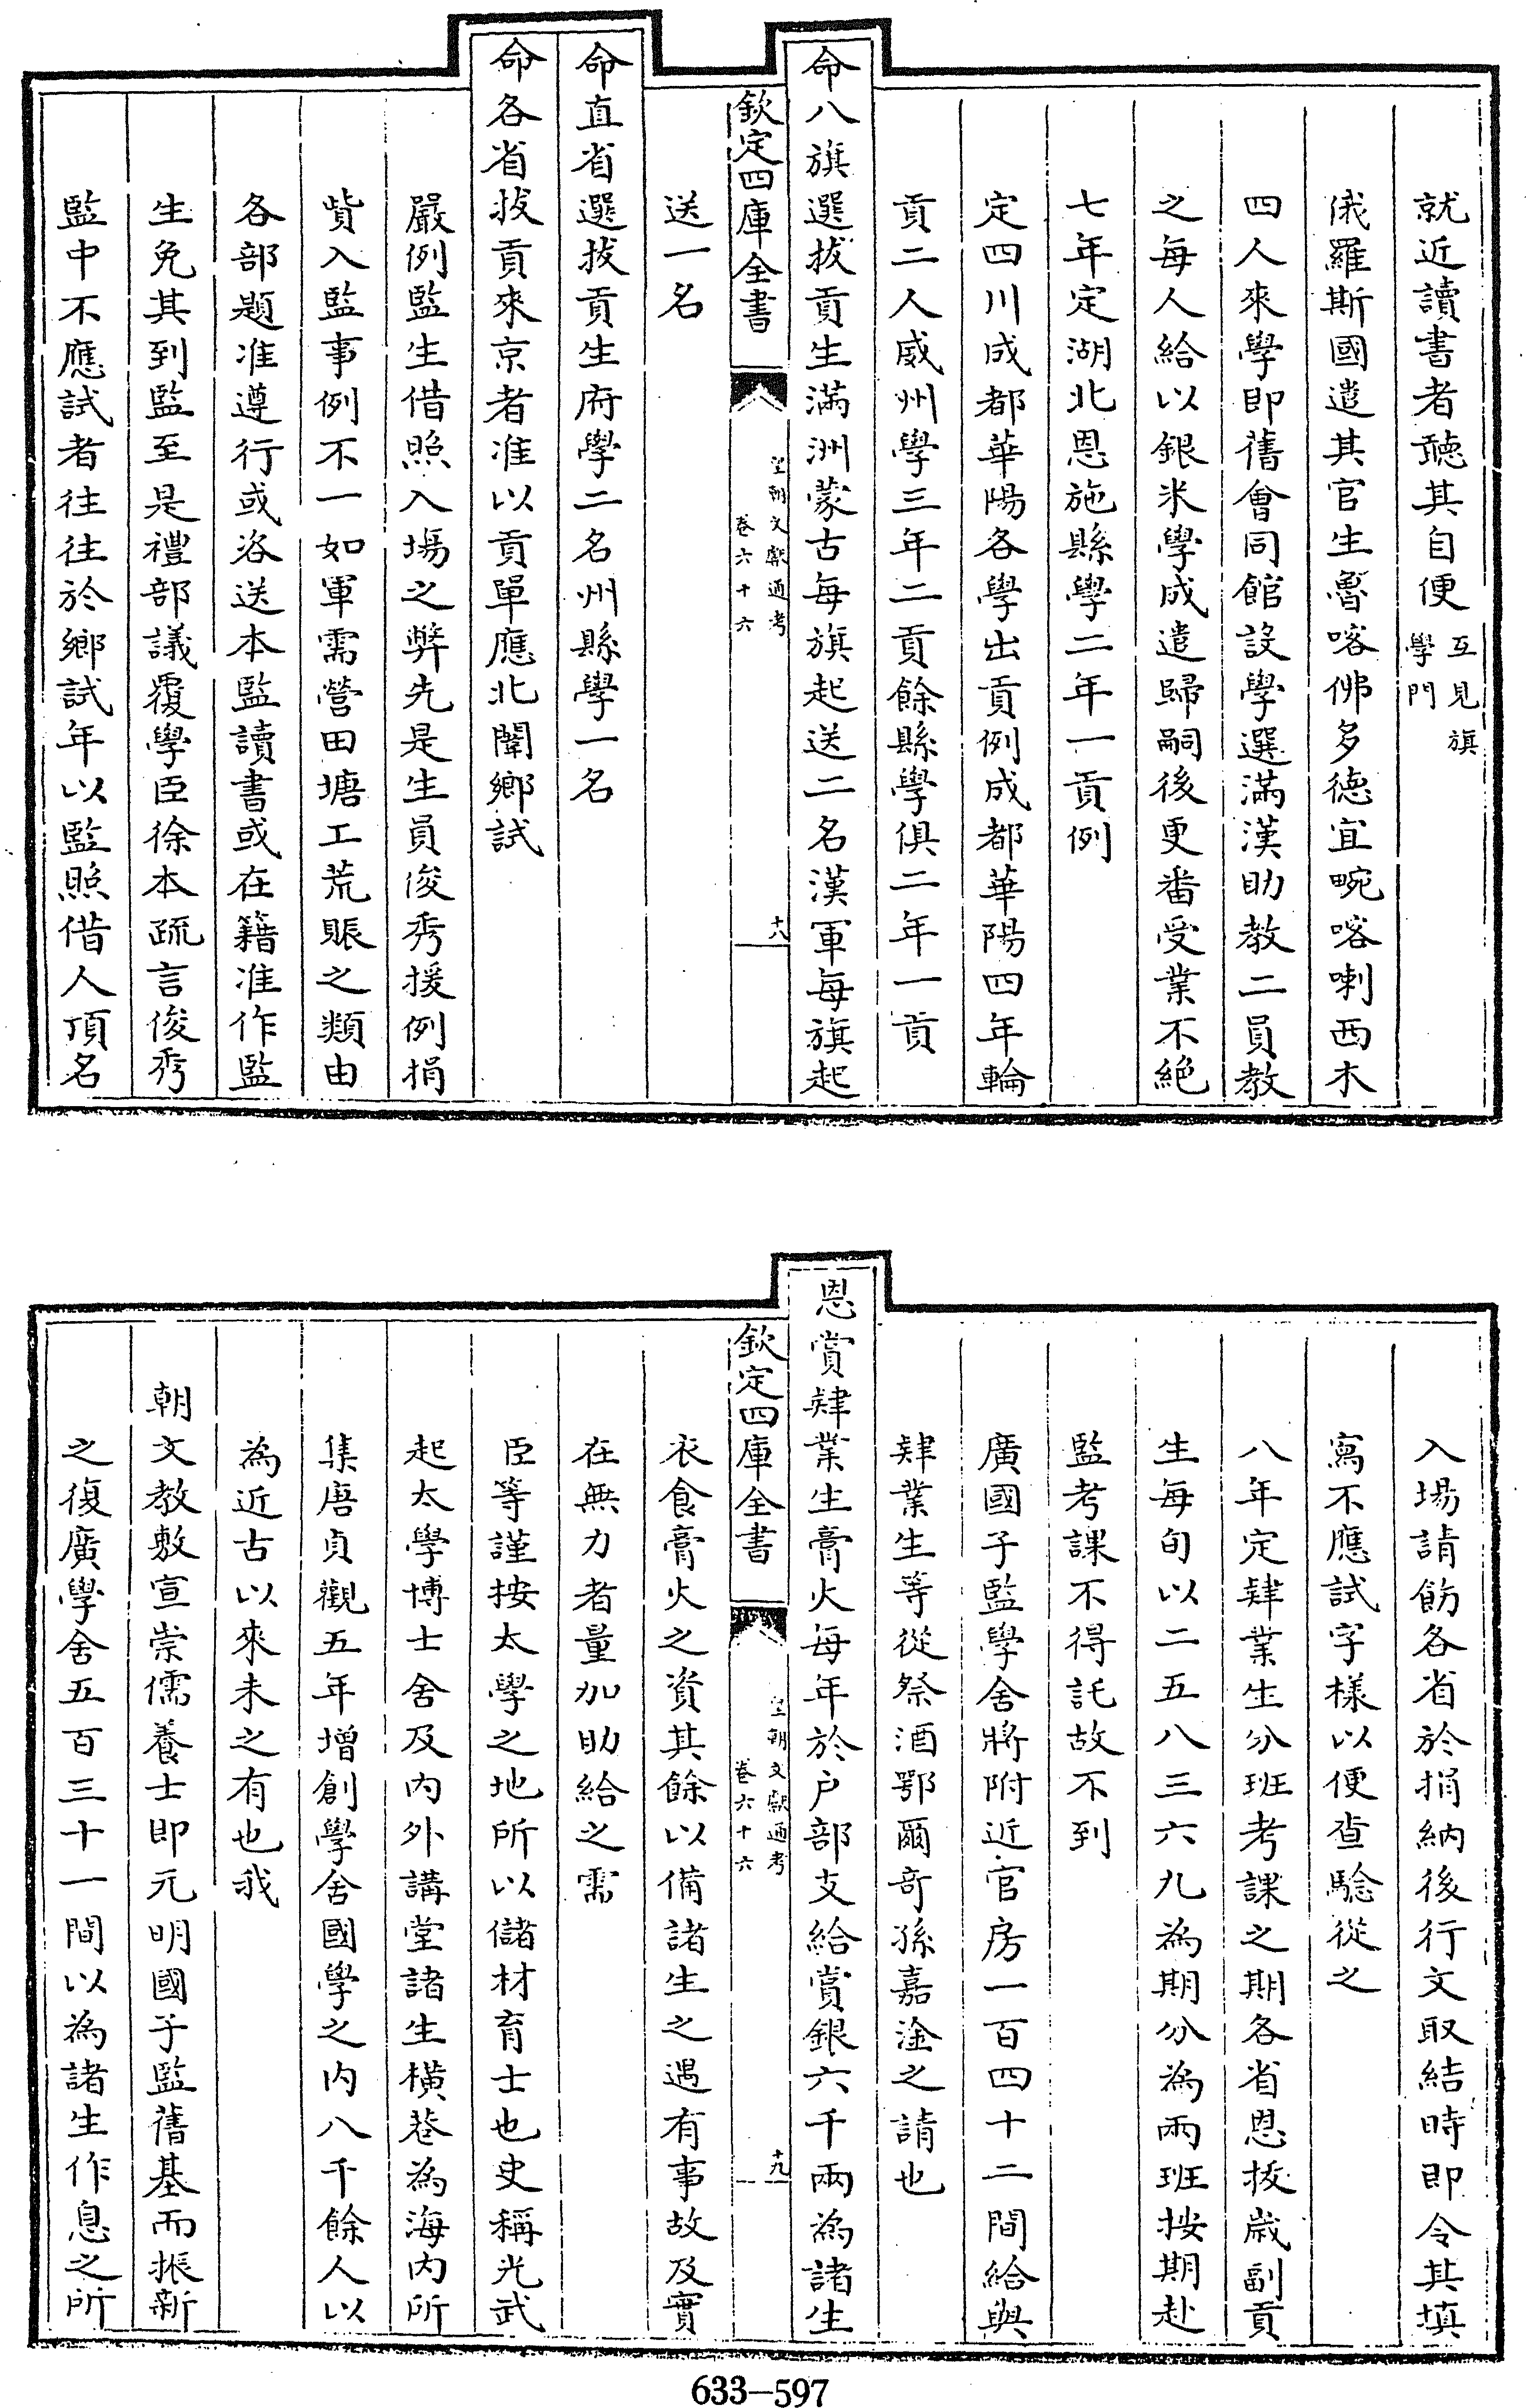 就近讀書者聽其自便互見旗學門
俄羅斯國遣其官生魯喀佛多德宜畹喀喇西木
四人來學即舊會同館設學選滿漢助教二員教
之每人給以銀米學成遣歸嗣後更番受業不絕
七年定湖北恩施縣學二年一貢例
定四川成都華陽各學出貢例成都華陽四年輪
貢二人威州學三年二貢餘縣學俱二年一貢
命八旗選拔貢生滿洲蒙古每旗起送二名漢軍每旗起
欽定四庫全書
皇朝文獻通考
卷六十六
十八
送一名
命直省選拔貢生府學二名州縣學一名
命各省拔貢來京者准以貢單應北闈鄉試
嚴例監生借照入場之弊先是生員俊秀援例捐
貲入監事例不一如軍需營田塘工荒賑之類由
各部題准遵行或洛送本監讀書或在籍准作監
生免其到監至是禮部議覆學臣徐本疏言俊秀
監中不應試者往往於鄉試年以監照借人頂名
入場請飭各省於捐納後行文取結時即令其填
寫不應試字樣以便查驗從之
八年定肄業生分班考課之期各省恩拔歲副貢
生每旬以二五八三六九為期分為兩班按期赴
監考課不得託故不到
廣國子監學舍將附近官房一百四十二間給與
肄業生等從祭酒鄂爾奇孫嘉淦之請也
恩賞肄業生膏火每年於户部支給賞銀六千兩為諸生
欽定四庫全書
皇朝文獻通考
卷六十六
十九
衣食膏火之資其餘以備諸生之遇有事故及實
在無力者量加助給之需
臣等謹按太學之地所以儲材育士也史稱光武
起太學博士舍及內外講堂諸生橫巷為海內所
集唐貞觀五年增創學舍國學之內八千餘人以
為近古以來未之有也我
朝文教敷宣崇儒養士即元明國子監舊基而振新
之復廣學舍五百三十一間以為諸生作息之所
633-597